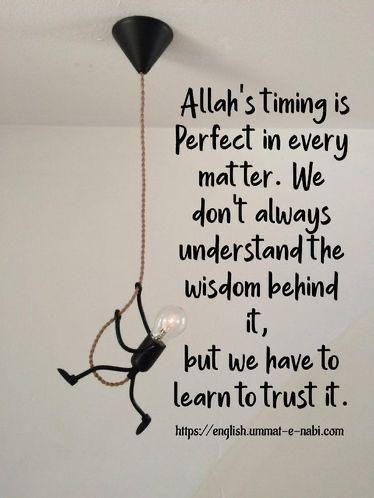 Allah's timing is
Perfect in every
matter. We
don't always
understand the
wisdom behind
it,
but we have to
learn to trust it.
https://english.ummat-e-nabi.com